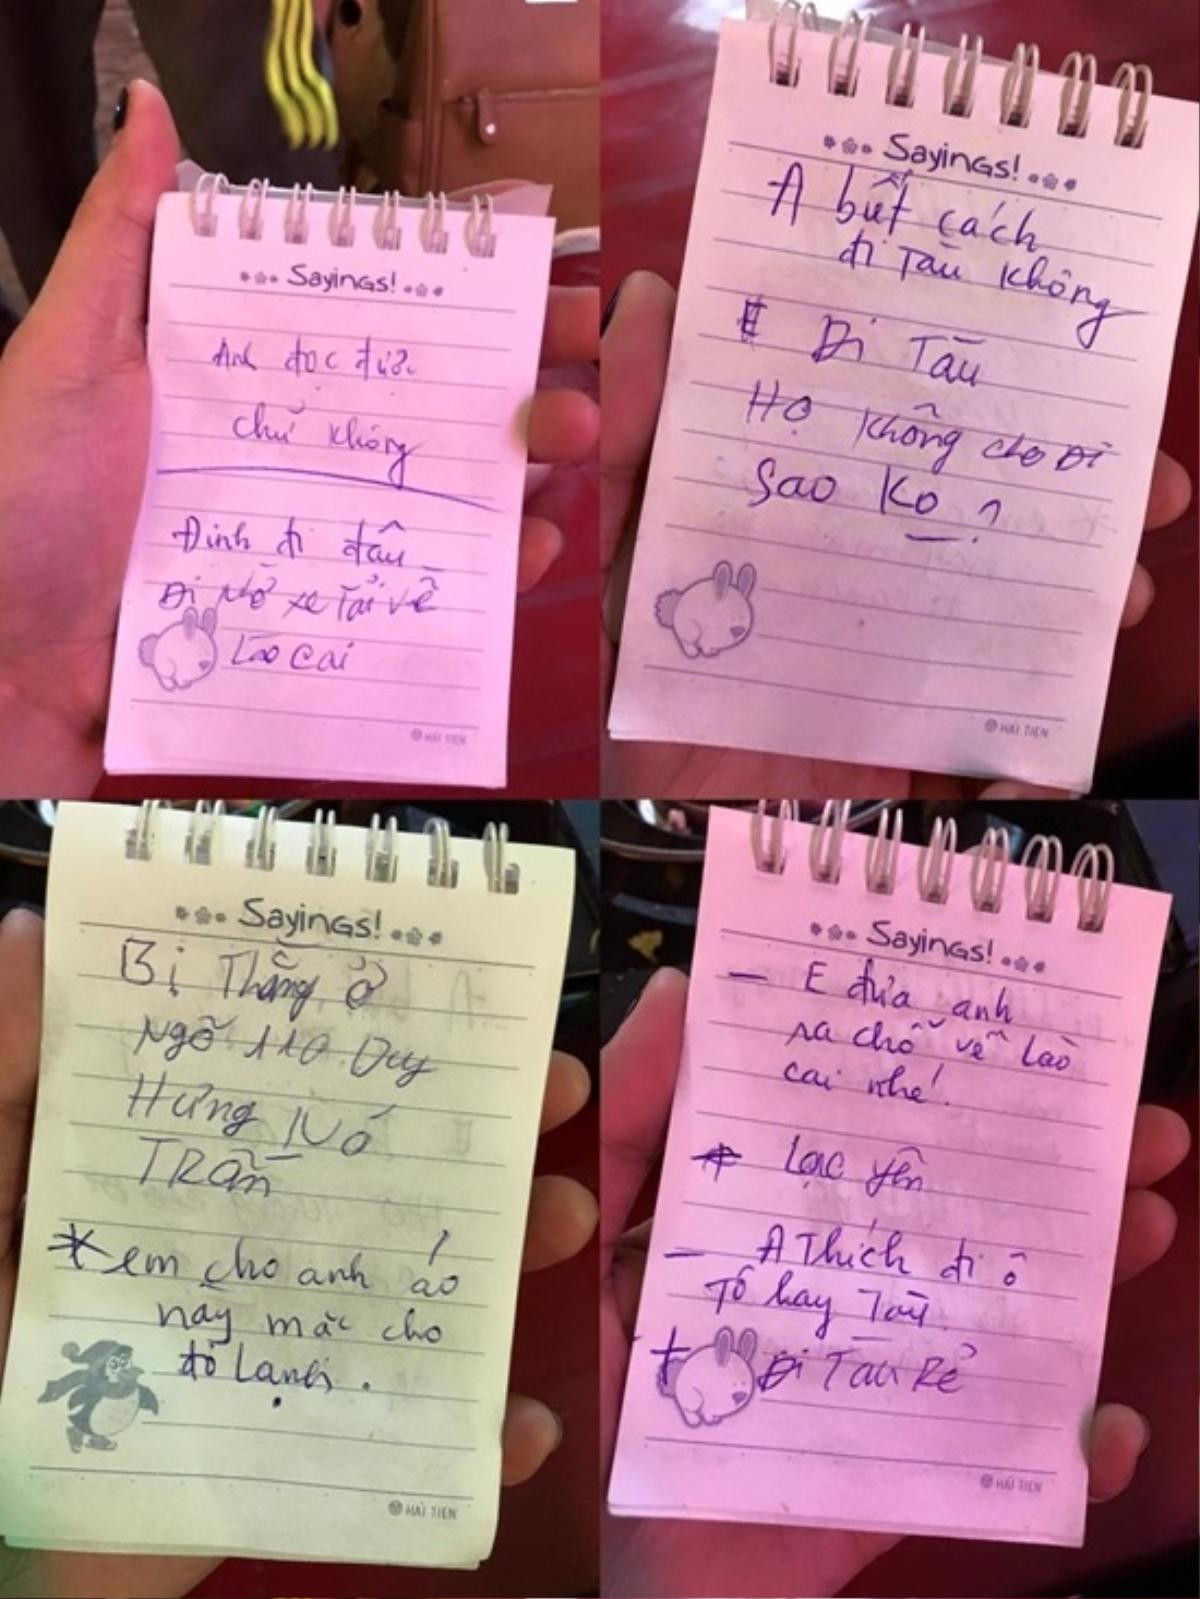 Sayings!
Anh đọc được
chứ không
Định đi đâu
Đi nhờ xe Tải về
Lào Cai
HẢI TIẾN
Sayings!
A biết cách
đi Tàu không
E Đi Tàu
Họ không cho Đi
Sao Ko ?
HẢI TIẾN
Sayings!
Bị Thằng ở
Ngõ 110 Duy
Hưng Nó
TRấn
* em cho anh áo
này mặc cho
đỡ Lạnh .
HẢI TIẾN
Sayings!
– E đưa anh
ra chỗ về Lào
cai nhé!
+ Lạc yên
– A Thích đi ô
Tô hay Tàu.
+ Đi Tàu Rẻ
HẢI TIẾN